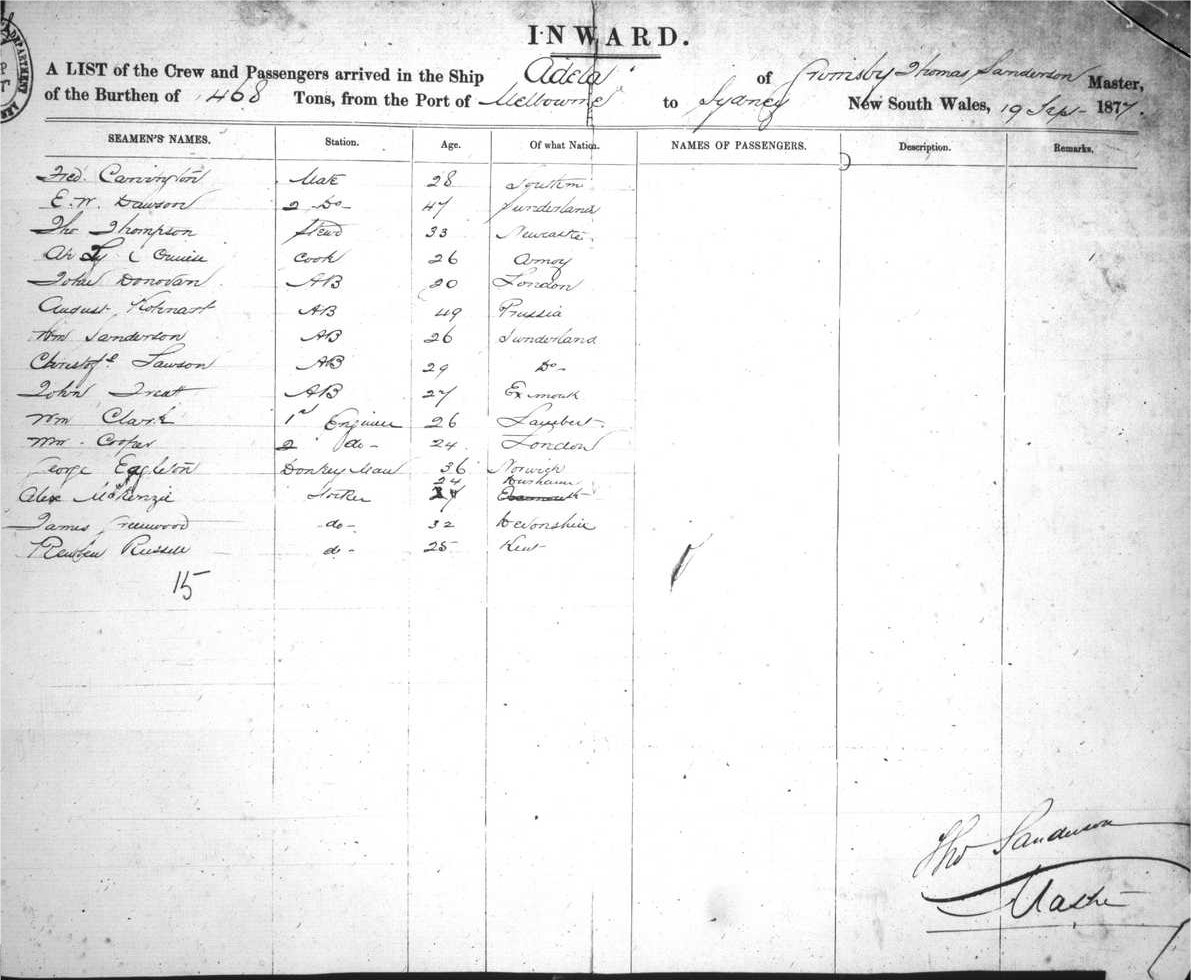 INWARD.
A LIST of the Crew and Passengers arrived in the Ship Adela of Grimsby Thomas Sanderson Master,
of the Burthen of 468 Tons, from the Port of Melbourne to Sydney New South Wales, 19 Sep- 1877.
SEAMEN'S NAMES. Station. Age. Of what Nation. NAMES OF PASSENGERS. Description. Remarks.
Fred. Carrington Mate 28
E. W. Dawson 2 Do- 47 Sunderland
Tho Thompson Stewd 33 Newcastle
Ah Cook 26 Amoy
John Donovan AB 20 London
August AB 49 Prussia
Wm Sanderson AB 26 Sunderland
Christofr Lawson AB 29 Do-
John Treat AB 27 Exmouth
Wm Clark 1st Engineer 26 Lambert-
Wm Cooper 2 do- 24 London
George Eagleton Donkey Man 36 Norwich
Alex McKenzie Stoker 24
James Greenwood do- 32 Devonshire
Reuben Russell do- 25 Kent
15
Tho Sanderson
Master